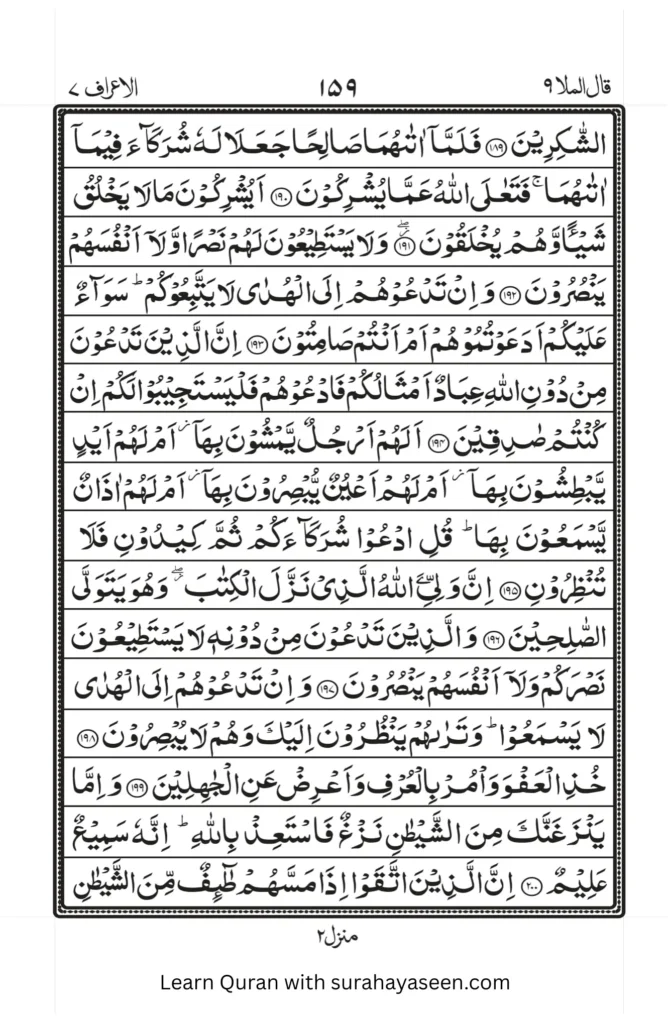 قال الملا ٩ ١٥٩ الاعراف ٧
الشّٰكِرِيْنَ ﴿١٨٩﴾ فَلَمَّاۤ اٰتٰىهُمَا صَالِحًا جَعَلَا لَهٗ شُرَكَآءَ فِيْمَاۤ
اٰتٰىهُمَا ۚ فَتَعٰلَى اللّٰهُ عَمَّا يُشْرِكُوْنَ ﴿١٩٠﴾ اَيُشْرِكُوْنَ مَا لَا يَخْلُقُ
شَيْـًٔا وَّهُمْ يُخْلَقُوْنَ ﴿١٩١﴾ وَلَا يَسْتَطِيْعُوْنَ لَهُمْ نَصْرًا وَّلَاۤ اَنْفُسَهُمْ
يَنْصُرُوْنَ ﴿١٩٢﴾ وَاِنْ تَدْعُوْهُمْ اِلَى الْهُدٰى لَا يَتَّبِعُوْكُمْ ؕ سَوَآءٌ
عَلَيْكُمْ اَدَعَوْتُمُوْهُمْ اَمْ اَنْتُمْ صَامِتُوْنَ ﴿١٩٣﴾ اِنَّ الَّذِيْنَ تَدْعُوْنَ
مِنْ دُوْنِ اللّٰهِ عِبَادٌ اَمْثَالُكُمْ فَادْعُوْهُمْ فَلْيَسْتَجِيْبُوْا لَكُمْ اِنْ
كُنْتُمْ صٰدِقِيْنَ ﴿١٩٤﴾ اَلَهُمْ اَرْجُلٌ يَّمْشُوْنَ بِهَاۤ ؗ اَمْ لَهُمْ اَيْدٍ
يَّبْطِشُوْنَ بِهَاۤ ؗ اَمْ لَهُمْ اَعْيُنٌ يُّبْصِرُوْنَ بِهَاۤ ؗ اَمْ لَهُمْ اٰذَانٌ
يَّسْمَعُوْنَ بِهَا ؕ قُلِ ادْعُوْا شُرَكَآءَكُمْ ثُمَّ كِيْدُوْنِ فَلَا
تُنْظِرُوْنِ ﴿١٩٥﴾ اِنَّ وَلِيِّۦَ اللّٰهُ الَّذِيْ نَزَّلَ الْكِتٰبَ ۖ وَهُوَ يَتَوَلَّى
الصّٰلِحِيْنَ ﴿١٩٦﴾ وَالَّذِيْنَ تَدْعُوْنَ مِنْ دُوْنِهٖ لَا يَسْتَطِيْعُوْنَ
نَصْرَكُمْ وَلَاۤ اَنْفُسَهُمْ يَنْصُرُوْنَ ﴿١٩٧﴾ وَاِنْ تَدْعُوْهُمْ اِلَى الْهُدٰى
لَا يَسْمَعُوْا ؕ وَتَرٰىهُمْ يَنْظُرُوْنَ اِلَيْكَ وَهُمْ لَا يُبْصِرُوْنَ ﴿١٩٨﴾
خُذِ الْعَفْوَ وَاْمُرْ بِالْعُرْفِ وَاَعْرِضْ عَنِ الْجٰهِلِيْنَ ﴿١٩٩﴾ وَاِمَّا
يَنْزَغَنَّكَ مِنَ الشَّيْطٰنِ نَزْغٌ فَاسْتَعِذْ بِاللّٰهِ ؕ اِنَّهٗ سَمِيْعٌ
عَلِيْمٌ ﴿٢٠٠﴾ اِنَّ الَّذِيْنَ اتَّقَوْا اِذَا مَسَّهُمْ طٰٓئِفٌ مِّنَ الشَّيْطٰنِ
منزل ٢
Learn Quran with surahayaseen.com